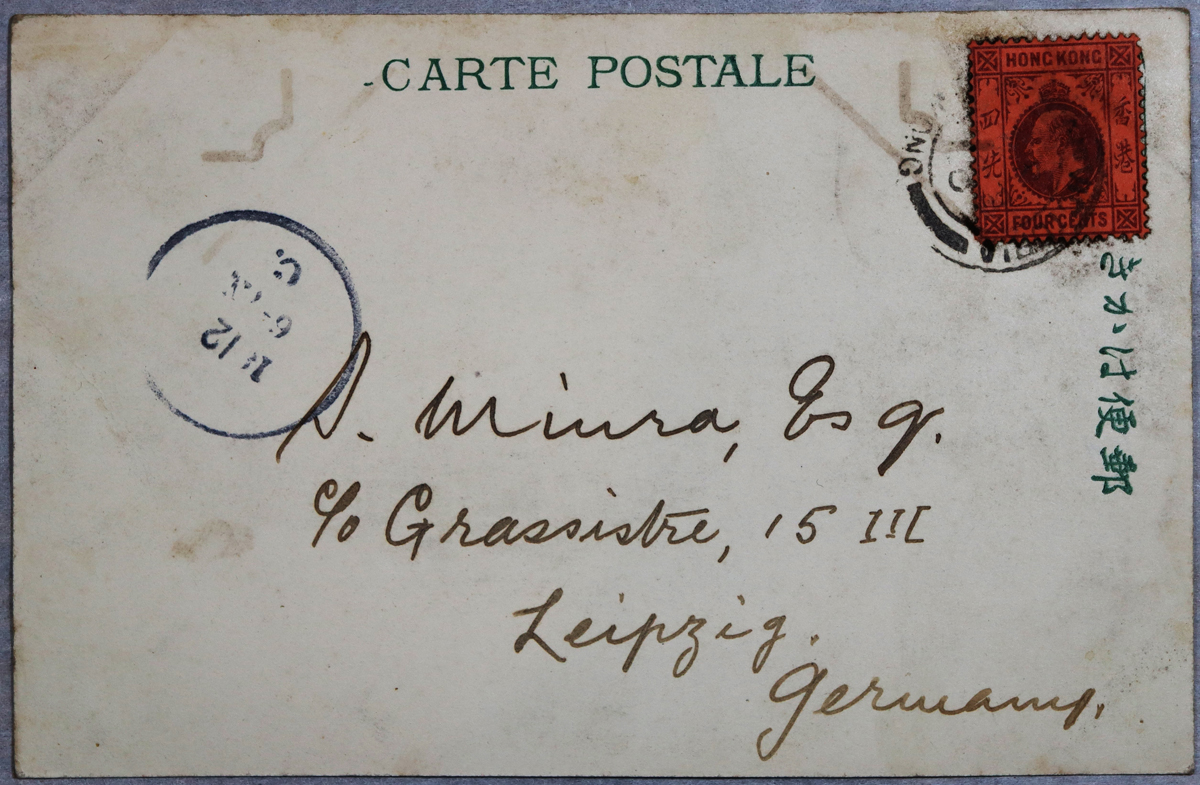 CARTE POSTALE
HONG KONG
香港
四先
FOUR CENTS
きかは便郵
12
S. Miura, Esq.
c/o Grassistre, 15 III
Leipzig.
Germany.